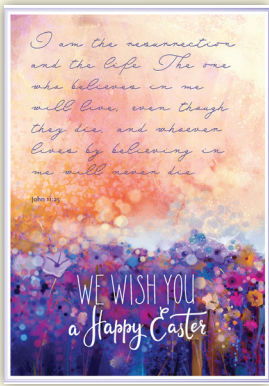 I am the resurrection
and the life The one
who believes in me
will live, even though
they die; and whoever
lives by believing in
me will never die
John 11:25
WE WISH YOU
a Happy Easter